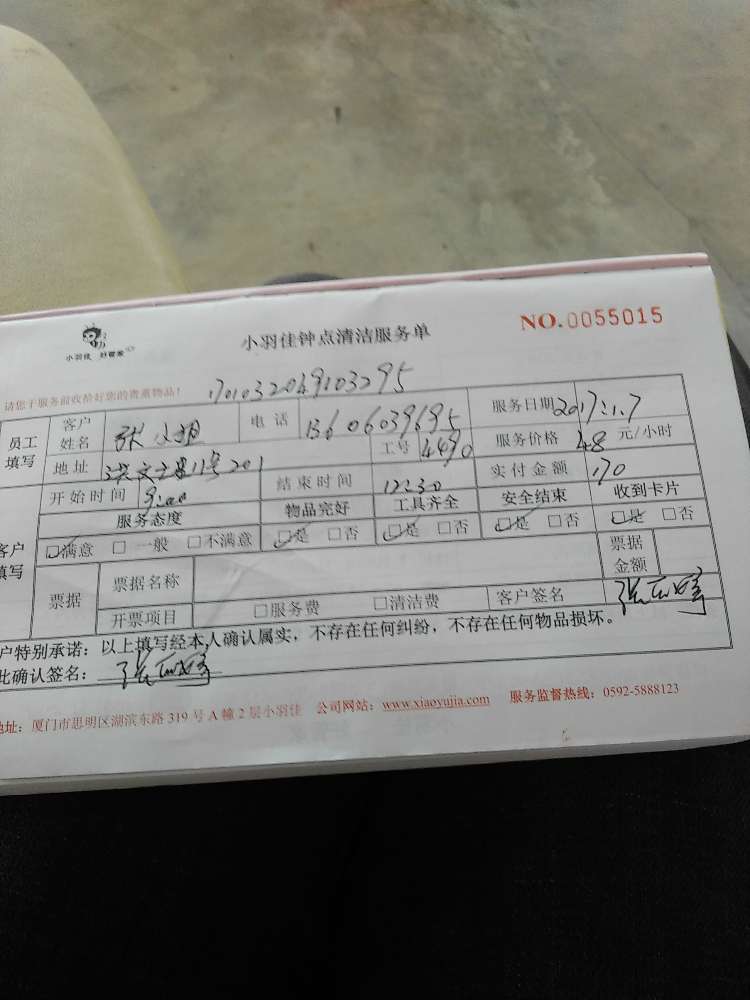 小羽佳 好管家
小羽佳钟点清洁服务单
NO.0055015
请您于服务前收拾好您的贵重物品!
1701032049103295
员工填写
客户姓名 张小姐 电话 13606039695 服务日期 2017.1.7
地址 洪文 11号201 工号 4490 服务价格 48 元/小时
开始时间 9:00 结束时间 12:30 实付金额 170
服务态度 物品完好 工具齐全 安全结束 收到卡片
客户填写
☑满意 □一般 □不满意 ☑是 □否 ☑是 □否 ☑是 □否 ☑是 □否
票据 票据名称 票据金额
开票项目 □服务费 □清洁费 客户签名 张
户特别承诺:以上填写经本人确认属实,不存在任何纠纷,不存在任何物品损坏。
此确认签名: 张
地址:厦门市思明区湖滨东路 319 号 A 幢 2 层小羽佳 公司网站:www.xiaoyujia.com 服务监督热线:0592-5888123